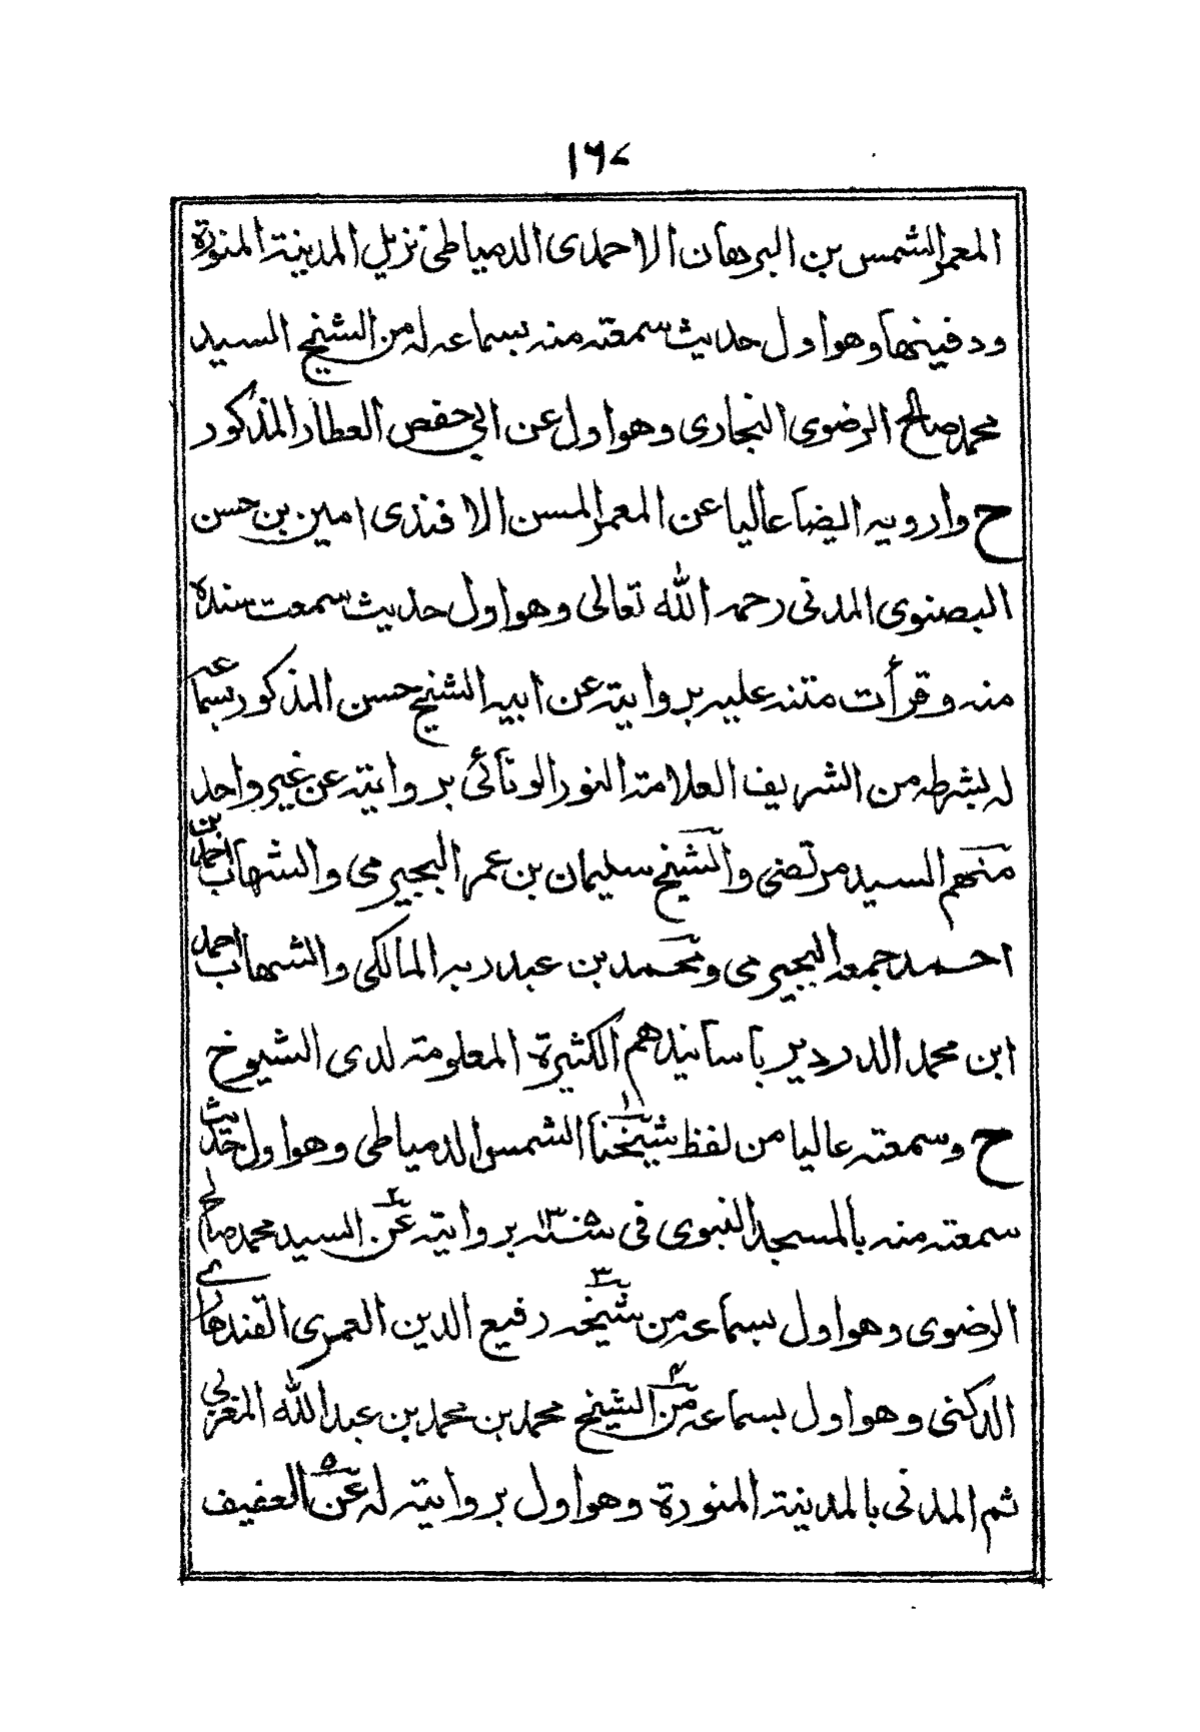 ١٦٧
المعمر الشمس بن البرهان الاحمدى الدمياطى نزيل المدينة المنورة
ودفينها وهو اول حديث سمعته منه بسماعه له من الشيخ السيد
محمد صالح الرضوى البخارى وهو اول عن ابي حفص العطار المذكور
ح وارويه ايضا عاليا عن المعمر المسن الافندى امين بن حسن
البصنوى المدنى رحمه الله تعالى وهو اول حديث سمعت سنده
منه وقرأت متنه عليه بروايته عن ابيه الشيخ حسن المذكور بسماعه
له بشرطه من الشريف العلامة النور الونائى بروايته عن غير واحد
منهم السيد مرتضى والشيخ سليمان بن عمر البجيرمى والشهاب احمد بن
احمد جمعه البجيرمى ومحمد بن عبد ربه المالكى والشهاب احمد
ابن محمد الدردير بأسانيدهم الكثيرة المعلومة لدى الشيوخ
ح وسمعته عاليا من لفظ شيخنا ١ الشمس الدمياطى وهو اول حديث
سمعته منه بالمسجد النبوى فى بروايته عن ٢ السيد محمد صالح
الرضوى وهو اول بسماعه من شيخه ٣ رفيع الدين العمرى القندهارى
الدكنى وهو اول بسماعه من ٤ الشيخ محمد بن محمد بن عبد الله المغربي
ثم المدنى بالمدينة المنورة وهو اول بروايته له عن ٥ العفيف